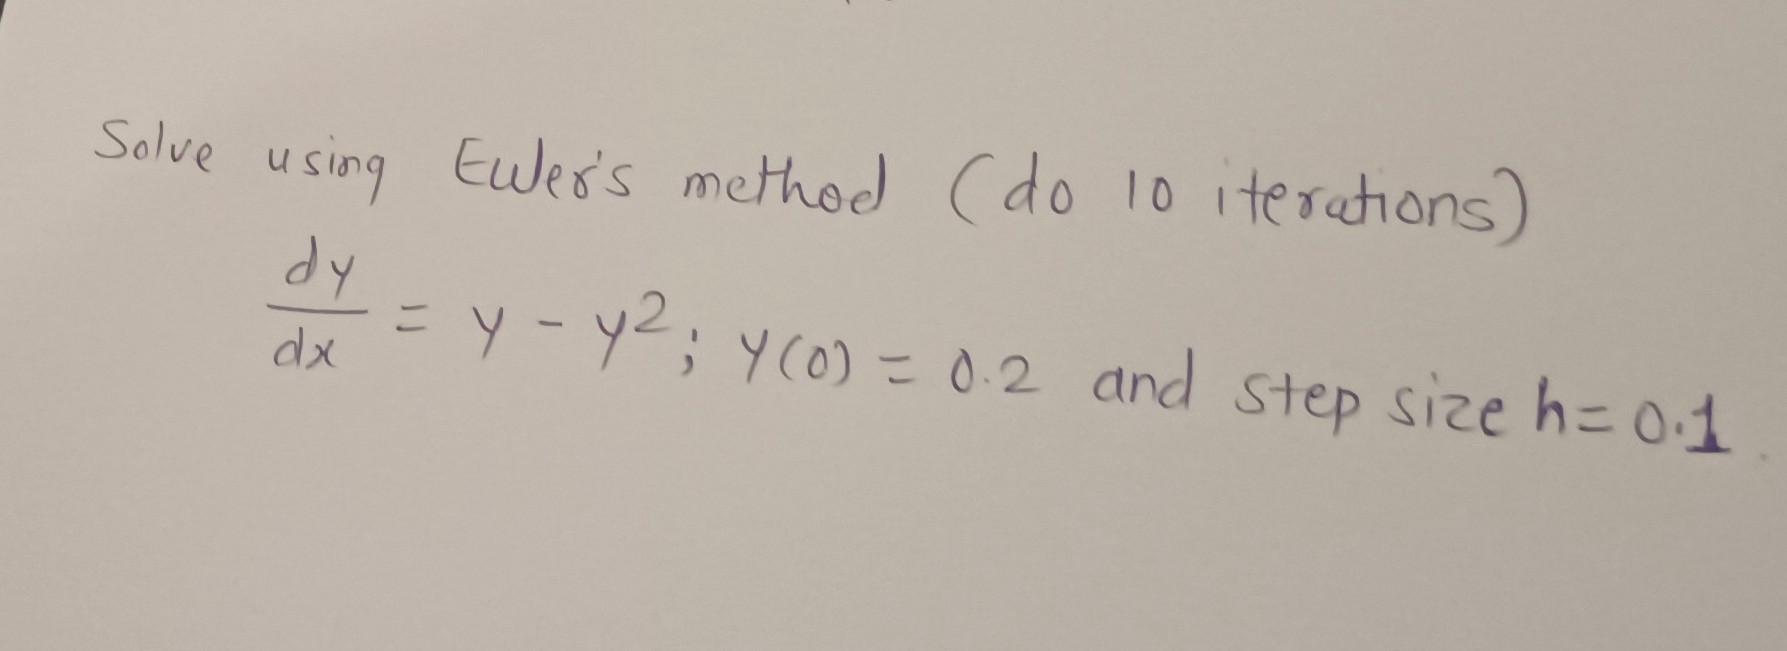 Solve using Euler's method (do 10 iterations)
dy/dx = y - y²; y(0) = 0.2 and step size h = 0.1